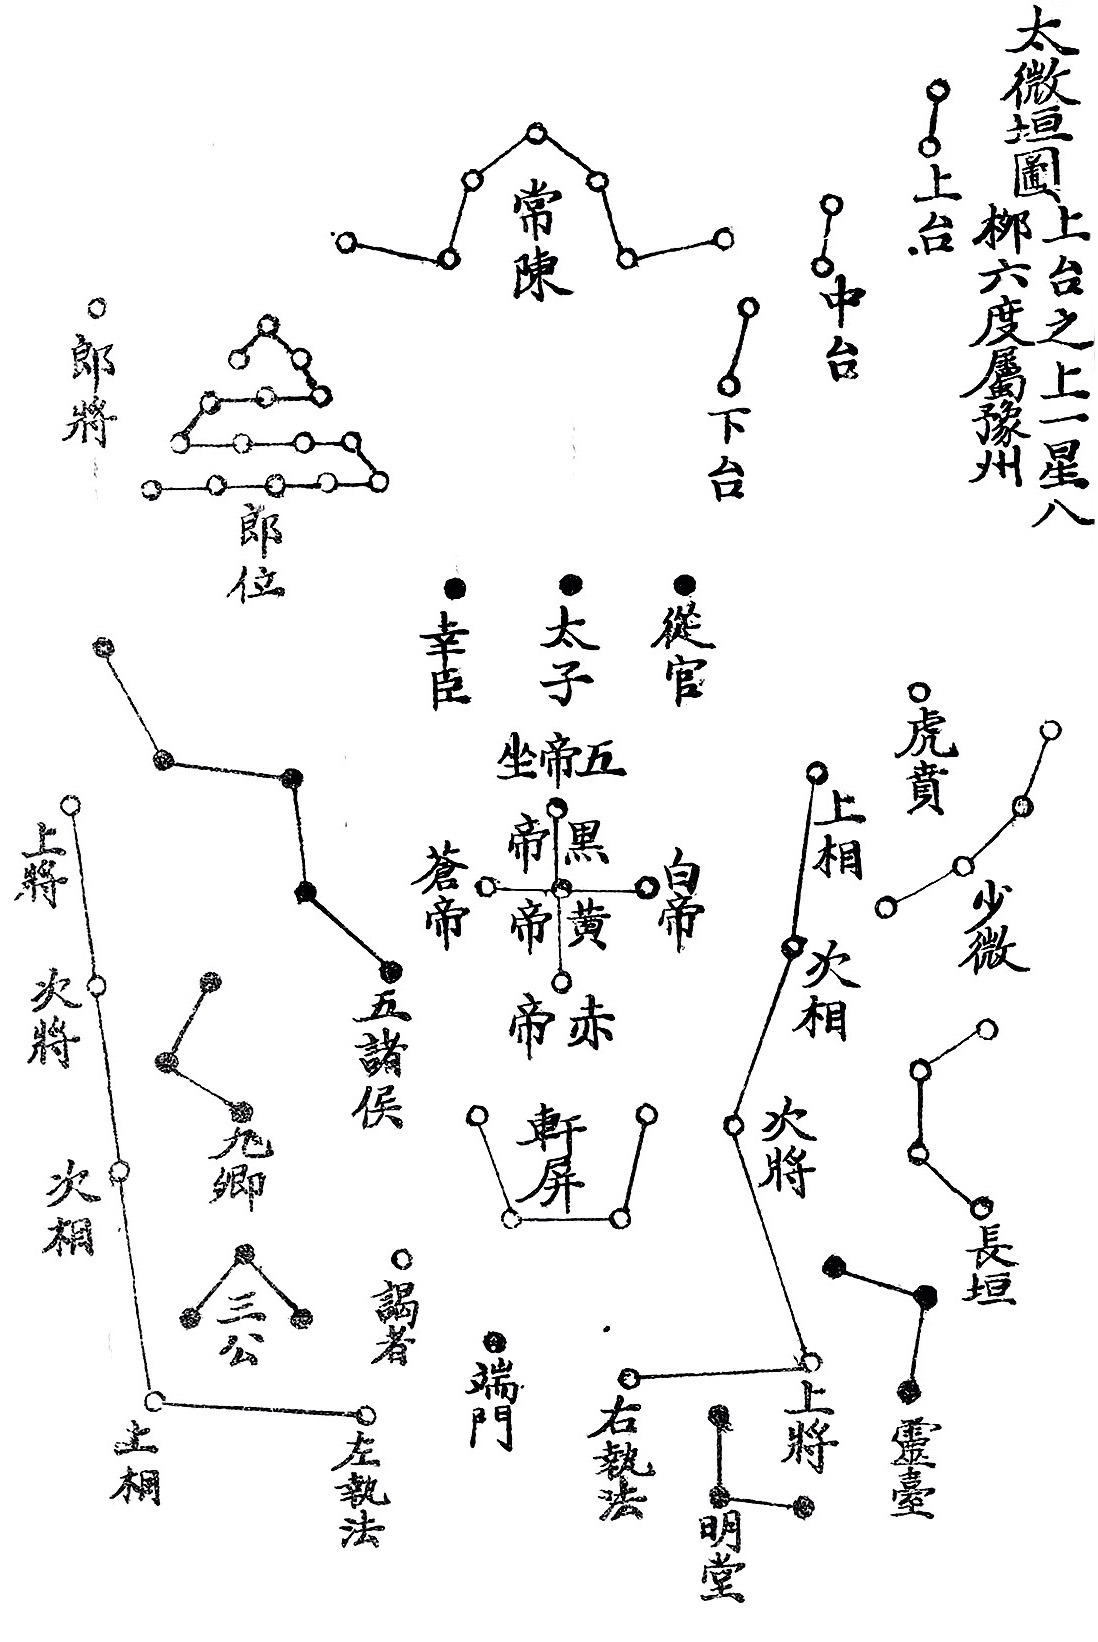 太微垣圖
上台之上一星八
柳六度屬豫州
上台
中台
下台
常陳
郎將
郎位
從官
太子
幸臣
五帝坐
黒帝
黄帝
白帝
蒼帝
赤帝
虎賁
少微
長垣
靈臺
明堂
上相
次相
次將
上將
右執法
軒屏
端門
謁者
五諸侯
九卿
三公
上將
次將
次相
上相
左執法